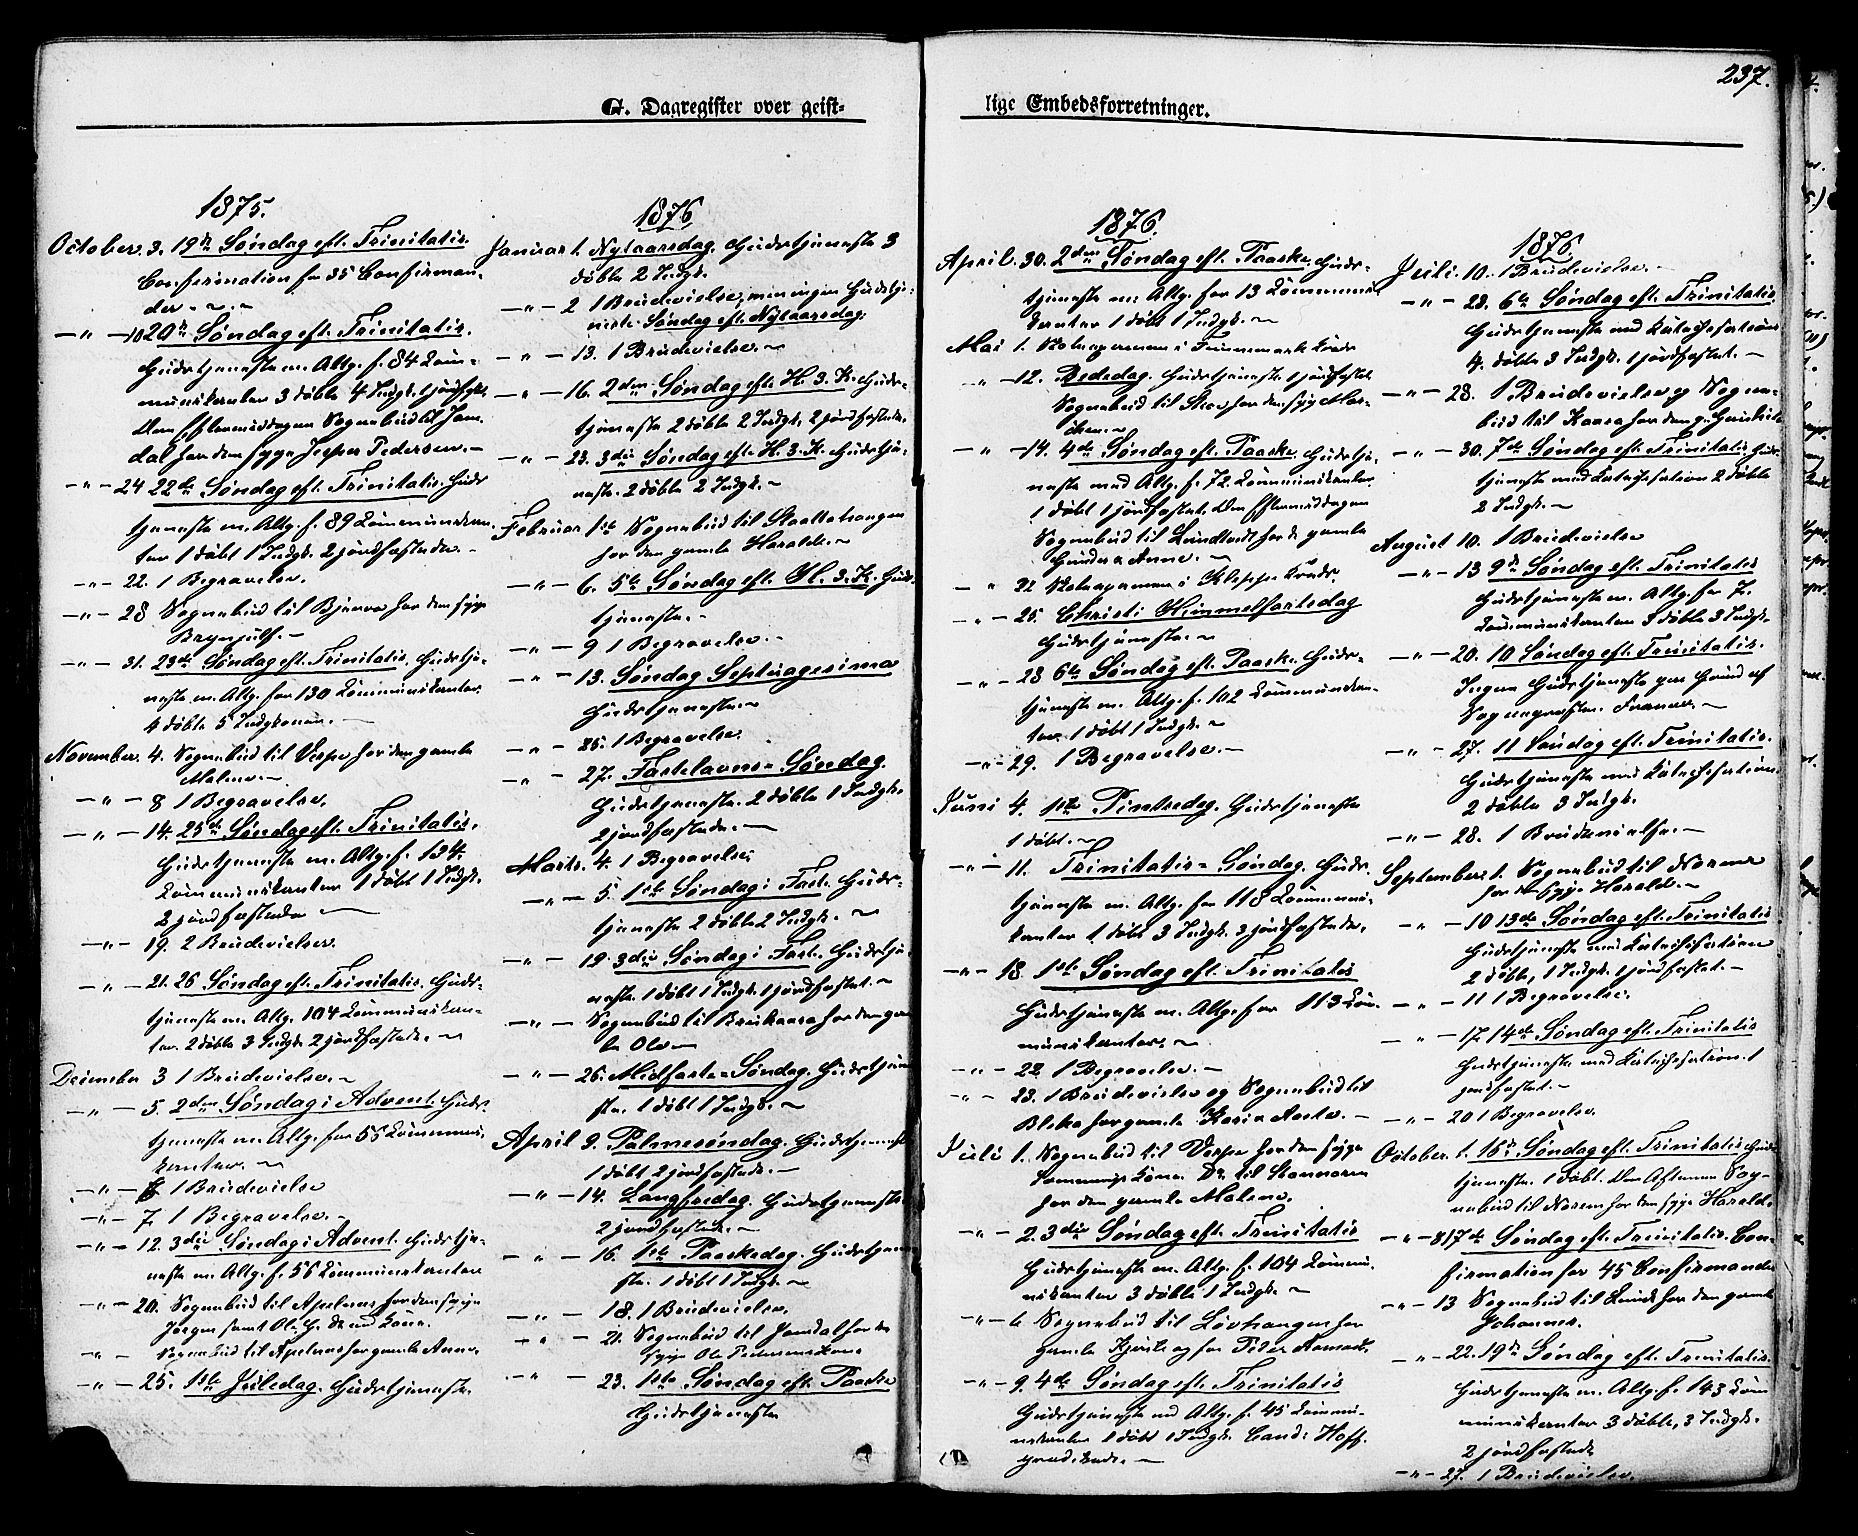 G. Dagregister over geist-
1875.
October. 3. 19de Søndag eft. Trinitatis.
Confirmation for 35 Confirman-
der.
— " — 10 20de Søndag eft. Trinitatis.
Gudstjeneste m. Altg. f. 84 Com-
munikanter 3 døbte 4 Indgk. 1 jordf.
Om Eftermiddagen Sognebud til Jon-
dal for den syge Jesper Pedersen. —
— " — 24 22de Søndag eft. Trinitatis. Guds-
tjeneste m. Altg. f. 89 Communikan-
ter 1 døbt 1 Indgk. 2 jordfæstede. —
— " — 22. 1 Begravelse.
— " — 28 Sognebud til Bjerva for den syge
Brynjulf. —
— " — 31. 23de Søndag eft. Trinitatis. Gudstje-
neste m. Altg. for 130 Communikanter
4 døbte 5 Indgkoner. —
November. 4. Sognebud til Vespe for den gamle
Malene. —
— " — 8 1 Begravelse.
— " — 14. 25de Søndag eft. Trinitatis.
Gudstjeneste m. Altg. f. 134.
Communikanter 1 døbt 1 Indgk.
2 jordfæstede —
— " — 19. 2 Brudevielser.
— " — 21. 26 Søndag eft. Trinitatis. Guds-
tjeneste m. Altg. 104 Communikan-
ter. 2 døbte 3 Indgk. 2 jordfæstede. —
December 3 1 Brudevielse. —
— " — 5. 2den Søndag i Advent. Guds-
tjeneste m. Altg. for 55 Communi-
kanter. —
— " — 1 Brudevielse
— " — 7. 1 Begravelse. —
— " — 12. 3die Søndag i Advent. Gudstje-
neste m. Altg. f. 56 Communikanter
— " — 20. Sognebud til Apelnæs for den syge
Jørgen samt Ole og Kone.
— " — Sognebud til Apelnæs for gamle Anne.
— " — 25. 1ste Juledag. Gudstjeneste.
1876
Januar 1. Nytaarsdag. Gudstjeneste 3
døbte 2 Indgk.
— " — 2 1 Brudevielse, men ingen Gudstje-
neste. Søndag eft. Nytaarsdag.
— " — 13. 1 Brudevielse. —
— " — 16. 2den Søndag eft. H. 3. K. Guds-
tjeneste 2 døbte 2 Indgk. 2 jordfæstede.
— " — 23. 3die Søndag eft. H. 3. K. Gudstje-
neste. 2 døbte 2 Indgk. —
Februar 1ste Sognebud til
for den gamle Harald. —
— " — 6. 5te Søndag eft. Hl. 3. K. Guds-
tjeneste. —
— " — 9 1 Begravelse. —
— " — 13. Søndag Septuagesima
Gudstjeneste. —
— " — 25. 1 Begravelse.
— " — 27. Fastelavns-Søndag.
Gudstjeneste. 2 døbte 1 Indgk.
2 jordfæstede. —
Marts. 4. 1 Begravelse.
— " — 5. 1ste Søndag i Fast. Guds-
tjeneste 2 døbte 2 Indgk. —
— " — 19. 3die Søndag i Fast. Gudstje-
neste. 1 døbt 1 Indgk. 1 jordfæstet. —
— " — Sognebud til for den gam-
le Ole —
— " — 26. Midfaste-Søndag. Gudstjene-
ste. 1 døbt 1 Indgk. —
April 9. Palmesøndag. Gudstjeneste
1 døbt 2 jordfæstede. —
— " — 14. Langfredag. Gudstjeneste
2 jordfæstede. —
— " — 16. 1ste Paaskedag. Gudstjene-
ste. 1 døbt 1 Indgk. —
— " — 18. 1 Brudevielse.
— " — 21. Sognebud til Jondal for den
syge Ole Pedersens Kone
— " — 23. 1ste Søndag eft. Paaske
Gudstjeneste
237.
lige Embedsforretninger.
1876.
April. 30. 2den Søndag eft. Paaske. Guds-
tjeneste m. Altg. for 13 Communi-
kanter 1 døbt 1 Indgk. —
Mai 1. i Kreds
— " — 12. Bededag. Gudstjeneste 1 jordfæstet
Sognebud til for den syge
— " — 14. 4de Søndag eft. Paaske. Gudstje-
neste med Altg. f. 72. Communikanter
1 døbt 1 jordfæstet. Om Eftermiddagen
Sognebud til for den gamle
Anne. —
— " — 22 i Kleppe Kreds.
— " — 25. Christi Himmelfartsdag
Gudstjeneste. —
— " — 28 6te Søndag eft. Paaske. Guds-
tjeneste m. Altg. f. 102 Communikan-
ter. 1 døbt 1 Indgk. —
— " — 29. 1 Begravelse. —
Juni 4. 1ste Pintsedag. Gudstjeneste
1 døbt. —
— " — 11. Trinitatis-Søndag. Guds-
tjeneste m. Altg. for 118 Communi-
kanter 1 døbt 3 Indgk. 3 jordfæstede.
— " — 18. 1ste Søndag eft. Trinitatis
Gudstjeneste m. Altg. for 113 Com-
munikanter. —
— " — 22. 1 Begravelse. —
— " — 23. 1 Brudevielse og Sognebud til
for gamle Kari Aasta. —
Juli 1. Sognebud til Vespe for den syge
Kone. Do. til
for den gamle Malene.
— " — 2. 3die Søndag eft. Trinitatis
Gudstjeneste m. Altg. f. 104 Commu-
nikanter 3 døbte 1 Indgk. —
— " — 6 Sognebud til for
gamle og for Peder
— " — 9. 4de Søndag eft. Trinitatis
Gudstjeneste med Altg. f. 45 Commu-
nikanter 1 døbt 1 Indgk. Cand: Hoff
prædikede. —
1876
Juli. 10. 1 Brudevielse. —
— " — 23. 6te Søndag eft. Trinitatis
Gudstjeneste med Katechisation
4. døbte 3 Indgk. 1 jordfæstet. —
— " — 28. 1 Brudevielse og Sogne-
bud til for den g.
— " — 30. 7de Søndag eft. Trinitatis Guds-
tjeneste med Katechisation 2 døbte
2 Indgk. —
August 10. 1 Brudevielse
— " — 13 9de Søndag eft. Trinitatis
Gudstjeneste m. Altg. for 7.
Communikanter 3 døbte 3 Indgk.
— " — 20. 10 Søndag eft. Trinitatis.
Ingen Gudstjeneste paa Grund af
Sognepræstens —
— " — 27. 11 Søndag eft. Trinitatis.
Gudstjeneste med Katechisation.
2 døbte 3 Indgk.
— " — 28. 1 Brudevielse. —
September 1. Sognebud til
for den syge Harald. —
— " — 10 13de Søndag eft. Trinitatis
Gudstjeneste med Katechisation
2 døbte, 1 Indgk. 1 jordfæstet. —
— " — 11 1 Begravelse.
— " — 17. 14de Søndag eft. Trinitatis
Gudstjeneste med Katechisation. 1
jordfæstet. —
— " — 20 1 Begravelse.
October 1. 16de Søndag eft. Trinitatis Guds-
tjeneste. 1 døbt. Om Aftenen Sog-
nebud til for den syge Harald.
— " — 8 17de Søndag eft. Trinitatis. Con-
firmation for 45 Confirmander
— " — 13 Sognebud til for den gamle
Johannes.
— " — 22. 19de Søndag eft. Trinitatis.
Gudstjeneste m. Altg. f. 143 Com
munikanter 3 døbte, 3 Indgk.
2 jordfæstede
— " — 27. 1 Brudevielse.